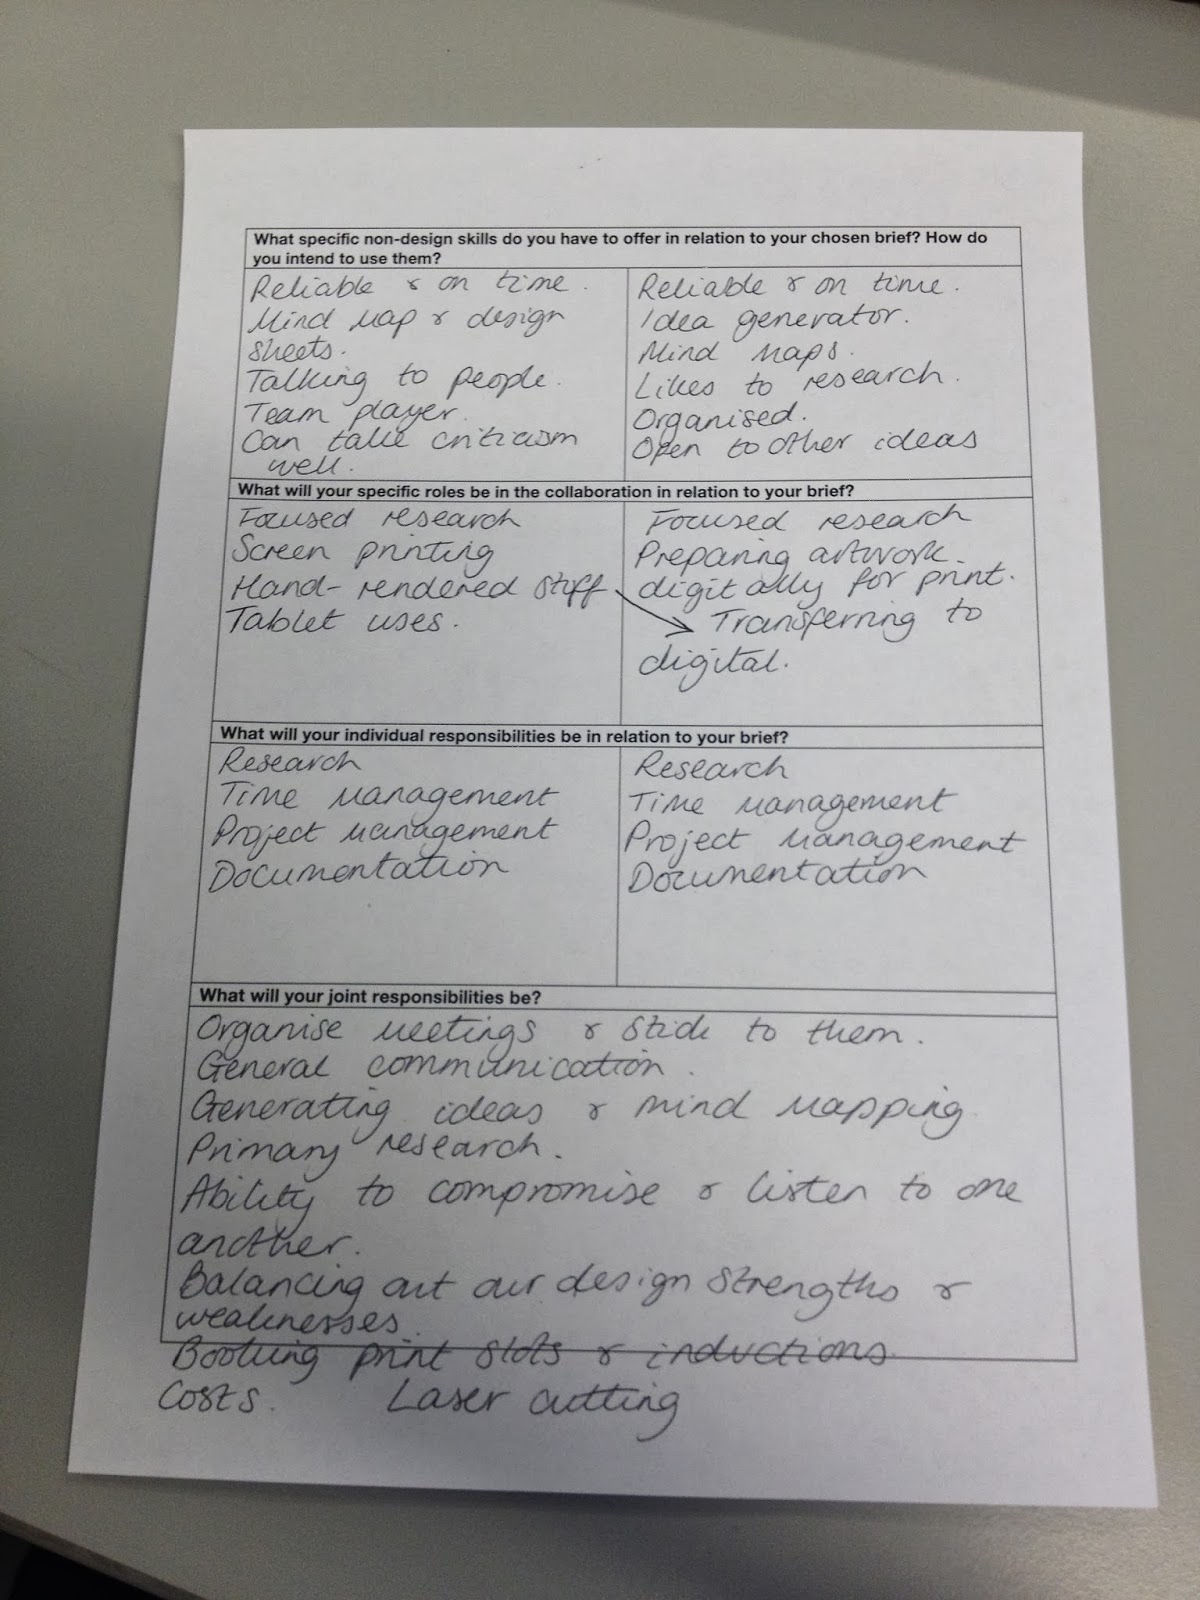 What specific non-design skills do you have to offer in relation to your chosen brief? How do
you intend to use them?
Reliable & on time.
Mind Map & design
sheets.
Talking to people.
Team player.
Can take criticism
well.
Reliable & on time.
Idea generator.
Mind Maps.
Likes to research.
Organised.
Open to other ideas
What will your specific roles be in the collaboration in relation to your brief?
Focused research
Screen printing
Hand-rendered stuff
Tablet uses.
Focused research
Preparing artwork
digitally for print.
Transferring to
digital.
What will your individual responsibilities be in relation to your brief?
Research
Time Management
Project Management
Documentation
Research
Time Management
Project Management
Documentation
What will your joint responsibilities be?
Organise meetings & stick to them.
General communication.
Generating ideas & mind mapping
Primary research.
Ability to compromise & listen to one
another.
Balancing out our design strengths &
weaknesses.
Booking print slots & inductions.
Costs. Laser cutting